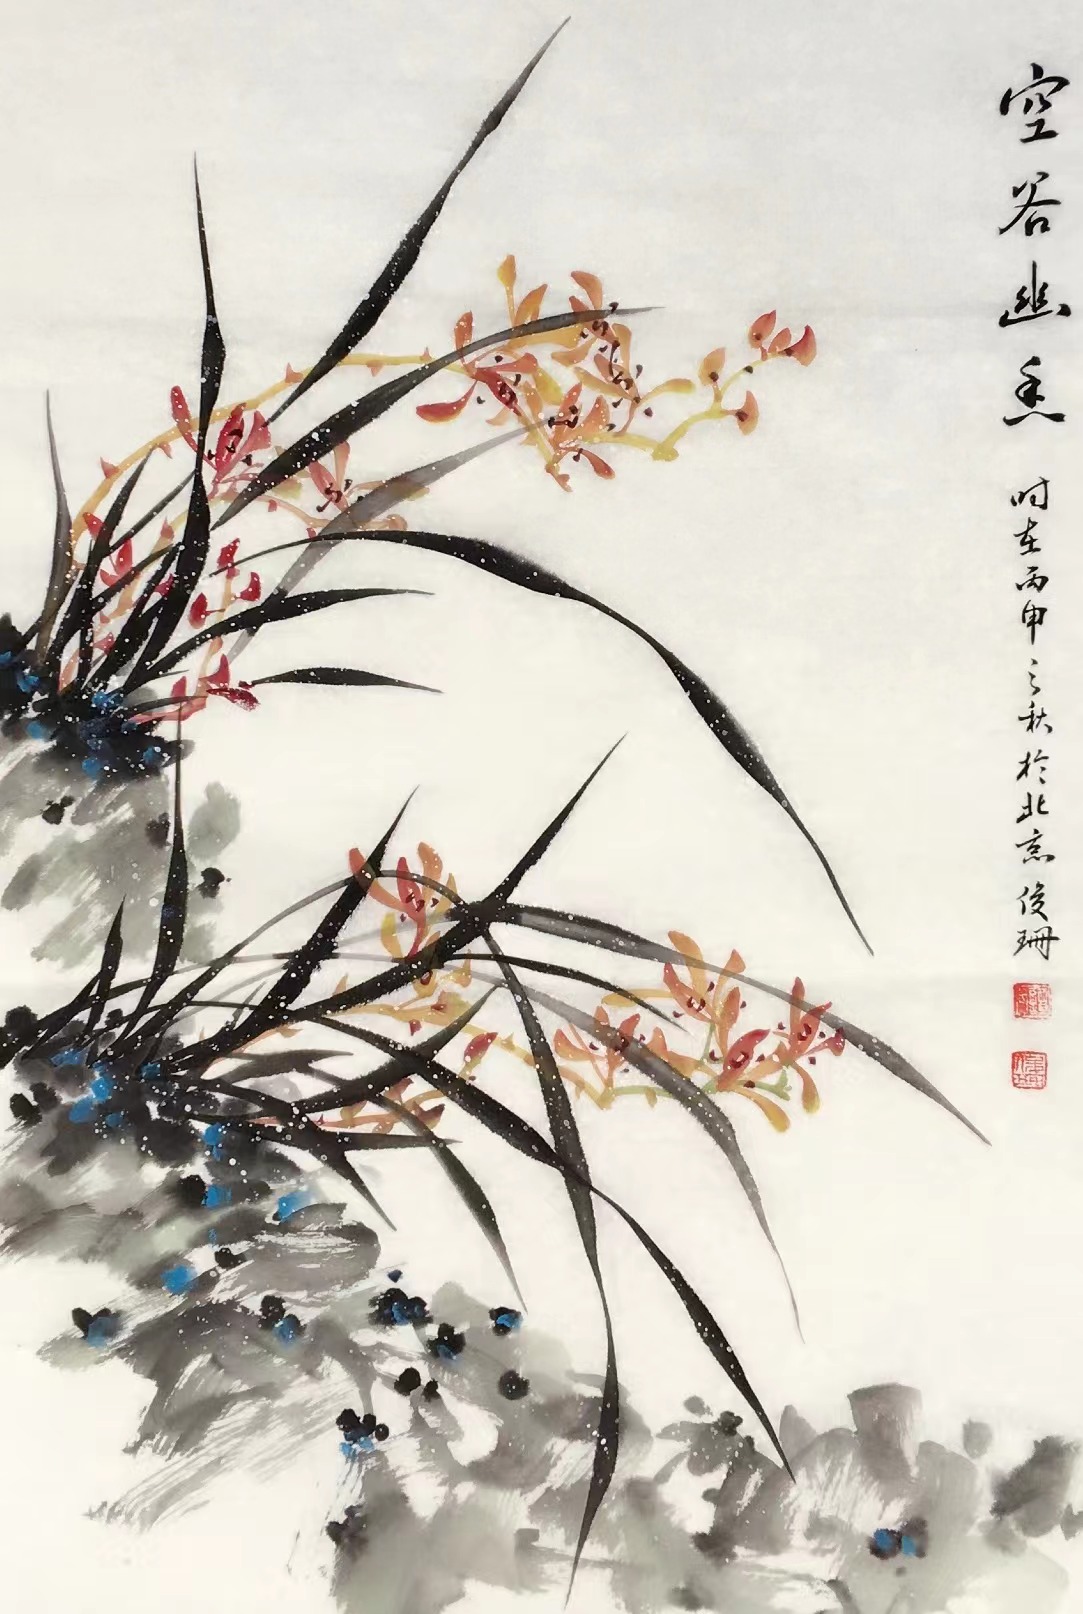 空谷幽香
时在丙申之秋於北京俊珊